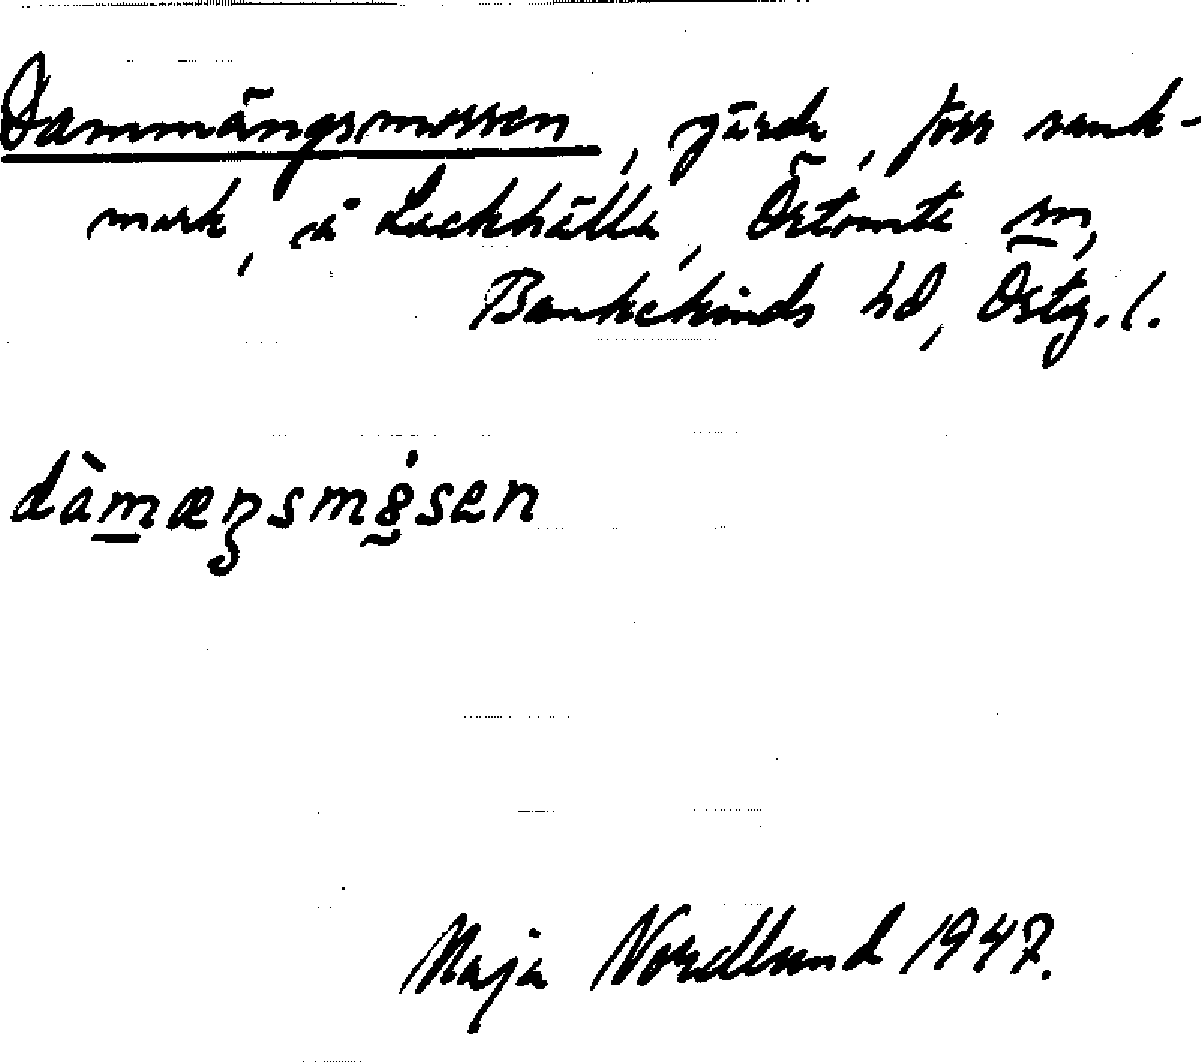 Dammängsmossen, gärde, förr sank-
mark, å Lackhälla, Örtomta sn,
Bankekinds hd, Östg. l.
dàmæŋsmo̰sen
Maja Nordlund 1947.